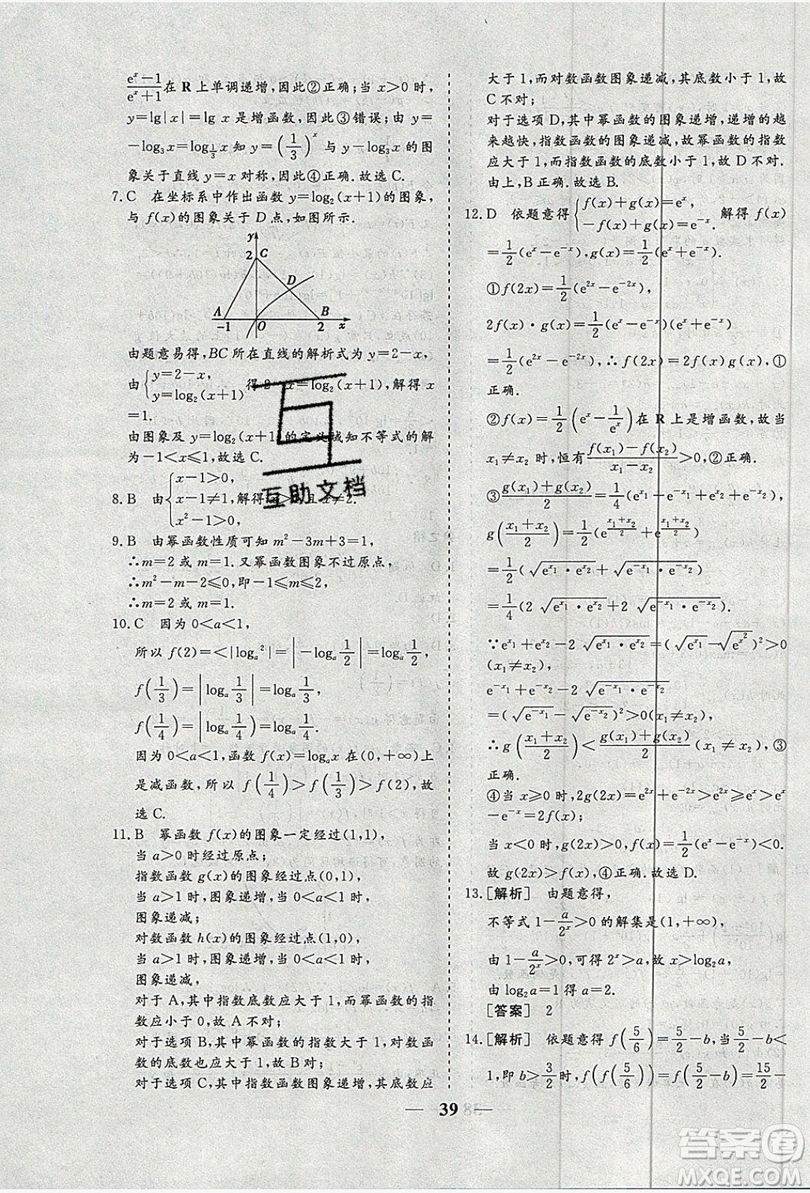 e^x－1/e^x＋1 在 R 上单调递增，因此②正确；当 x＞0 时，
y＝lg|x|＝lg x 是增函数，因此③错误；由 y＝
－log₃x＝log_{1/3}x 知 y＝(1/3)^x 与 y＝－log₃x 的图
象关于直线 y＝x 对称，因此④正确.故选 C.
7.C 在坐标系中作出函数 y＝log₂(x＋1)的图象，
与 f(x)的图象关于 D 点，如图所示.
y
2 C
D
A B
－1 O 2 x
由题意易得，BC 所在直线的解析式为 y＝2－x，
由{y＝2－x，
y＝log₂(x＋1) 得 2－x＝log₂(x＋1)，解得 x
＝1.
由图象及 y＝log₂(x＋1)的定义域知不等式的解
为－1＜x≤1，故选 C.
8.B 由{x－1＞0，
x－1≠1，
x²－1＞0， 解得 x＞1 且 x≠2.
9.B 由幂函数性质可知 m²－3m＋3＝1，
∴m＝2 或 m＝1.又幂函数图象不过原点，
∴m²－m－2≤0，即－1≤m≤2，
∴m＝2 或 m＝1.
10.C 因为 0＜a＜1，
所以 f(2)＝＜|logₐ²|＝|－logₐ 1/2|＝|logₐ 1/2|，
f(1/3)＝|logₐ 1/3|＝logₐ 1/3，
f(1/4)＝|logₐ 1/4|＝logₐ 1/4.
因为 0＜a＜1，函数 f(x)＝logₐx 在(0，＋∞)上
是减函数，所以 f(1/4)＞f(1/3)＞f(2)，故
选 C.
11.B 幂函数 f(x)的图象一定经过(1,1)，
当 a＞0 时经过原点；
指数函数 g(x)的图象经过点(0,1)，
当 a＞1 时，图象递增，当 0＜a＜1 时，
图象递减；
对数函数 h(x)的图象经过点(1,0)，
当 a＞1 时，图象递增，当 0＜a＜1 时，
图象递减，
对于 A，其中指数底数应大于 1，而幂函数的指
数应小于 0，故 A 不对；
对于选项 B，其中幂函数的指数大于 1，对数函
数的底数也应大于 1，故 B 对；
对于选项 C，其中指数函数图象递增，其底数应
大于 1，而对数函数图象递减，其底数小于 1，故
C 不对；
对于选项 D，其中幂函数的图象递增，递增的越
来越快，指数函数的图象递减，故幂函数的指数
应大于 1，而指数函数的底数应小于 1，故 D 不对.
由上，B 对.故选 B.
12.D 依题意得{f(x)＋g(x)＝e^x，
－f(x)＋g(x)＝e^{－x}， 解得 f(x)
＝1/2(e^x－e^{－x})，g(x)＝1/2(e^x＋e^{－x})，
①f(2x)＝1/2(e^{2x}－e^{－2x})，
2f(x)·g(x)＝1/2(e^x－e^{－x})(e^x＋e^{－x})
＝1/2(e^{2x}－e^{－2x})，∴f(2x)＝2f(x)g(x)，①
正确.
②f(x)＝1/2(e^x－1/e^x)在 R 上是增函数，故当
x₁≠x₂ 时，恒有 f(x₁)－f(x₂)/x₁－x₂＞0，②正确.
③g(x₁)＋g(x₂)/2＝1/4(e^{x₁}＋e^{－x₁}＋e^{x₂}＋e^{－x₂})，
g((x₁＋x₂)/2)＝1/2(e^{(x₁＋x₂)/2}＋e^{－(x₁＋x₂)/2})
＝1/2(√(e^{x₁}·e^{x₂})＋√(e^{－x₁}·e^{－x₂}))
＝1/4(2√(e^{x₁}·e^{x₂})＋2√(e^{－x₁}·e^{－x₂}))，
∵e^{x₁}＋e^{x₂}－2√(e^{x₁}·e^{x₂})＝(√e^{x₁}－√e^{x₂})²＞0
(x₁≠x₂)，
e^{－x₁}＋e^{－x₂}－2√(e^{－x₁}·e^{－x₂})
＝(√e^{－x₁}－√e^{－x₂})²＞0(x₁≠x₂)，
∴g((x₁＋x₂)/2)＜g(x₁)＋g(x₂)/2(x₁≠x₂)，③
正确.
④当 x≥0 时，2g(x)＝e^x＋e^{－x}＞e^x≥e^x＞x，
当 x＜0 时，2g(x)＝e^x＋e^{－x}＞e^{－x}＞－x，
故 2g(x)＞|x|，④正确.故选 D.
13.[解析] 由题意得，
不等式 1－a/2^x＞0 的解集是(1，＋∞)，
由 1－a/2^x＞0，可得 2^x＞a，故 x＞log₂a，
由 log₂a＝1 得 a＝2.
[答案] 2
14.[解析] 依题意得 f(5/6)＝5/2－b，当5/2－b＜
1，即 b＞3/2时，f(f(5/6))＝f(5/2－b)＝15/2－
39
互助文档
答案圈
MXQE.COM